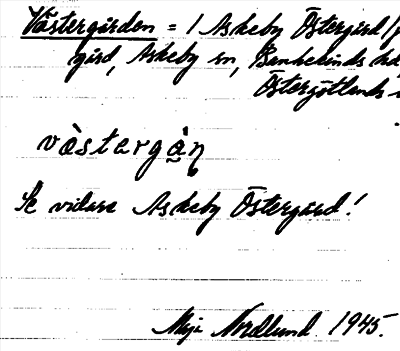 Västergården = 1 Askeby Östergård
gård, Askeby sn, Bankekinds
Östergötlands
västergån
Se vidare Askeby Östergård!
Maja Nordlund 1945.